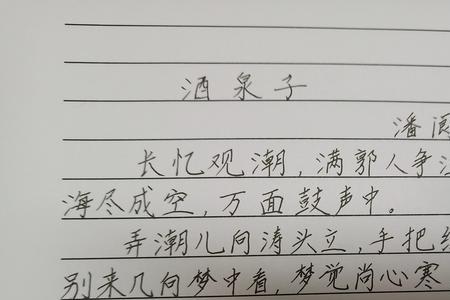 酒泉子
潘阆
长忆观潮，满郭人争
海尽成空，万面鼓声中。
弄潮儿向涛头立，手把
别来几向梦中看，梦觉尚心寒